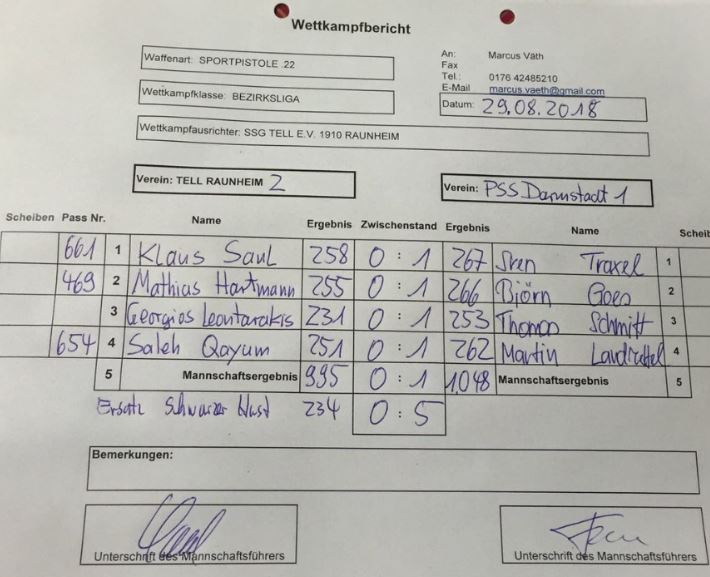 Wettkampfbericht
Waffenart: SPORTPISTOLE .22
An: Marcus Väth
Fax
Tel.: 0176 42485210
E-Mail marcus.vaeth@gmail.com
Wettkampfklasse: BEZIRKSLIGA
Datum: 29.08.2018
Wettkampfausrichter: SSG TELL E.V. 1910 RAUNHEIM
Verein: TELL RAUNHEIM 2
Verein: PSS Darmstadt 1
Scheiben Pass Nr. Name Ergebnis Zwischenstand Ergebnis Name Scheib
661 1 Klaus Saul 258 0 : 1 267 Sven Traxel 1
469 2 Mathias Hartmann 255 0 : 1 266 Björn Goes 2
3 Georgios Leontarakis 231 0 : 1 253 Thomas Schmitt 3
654 4 Saleh Qayum 251 0 : 1 262 Martin 4
5 Mannschaftsergebnis 995 0 : 1 1.048 Mannschaftsergebnis 5
Ersatz 234 0 : 5
Bemerkungen:
Unterschrift des Mannschaftsführers
Unterschrift des Mannschaftsführers